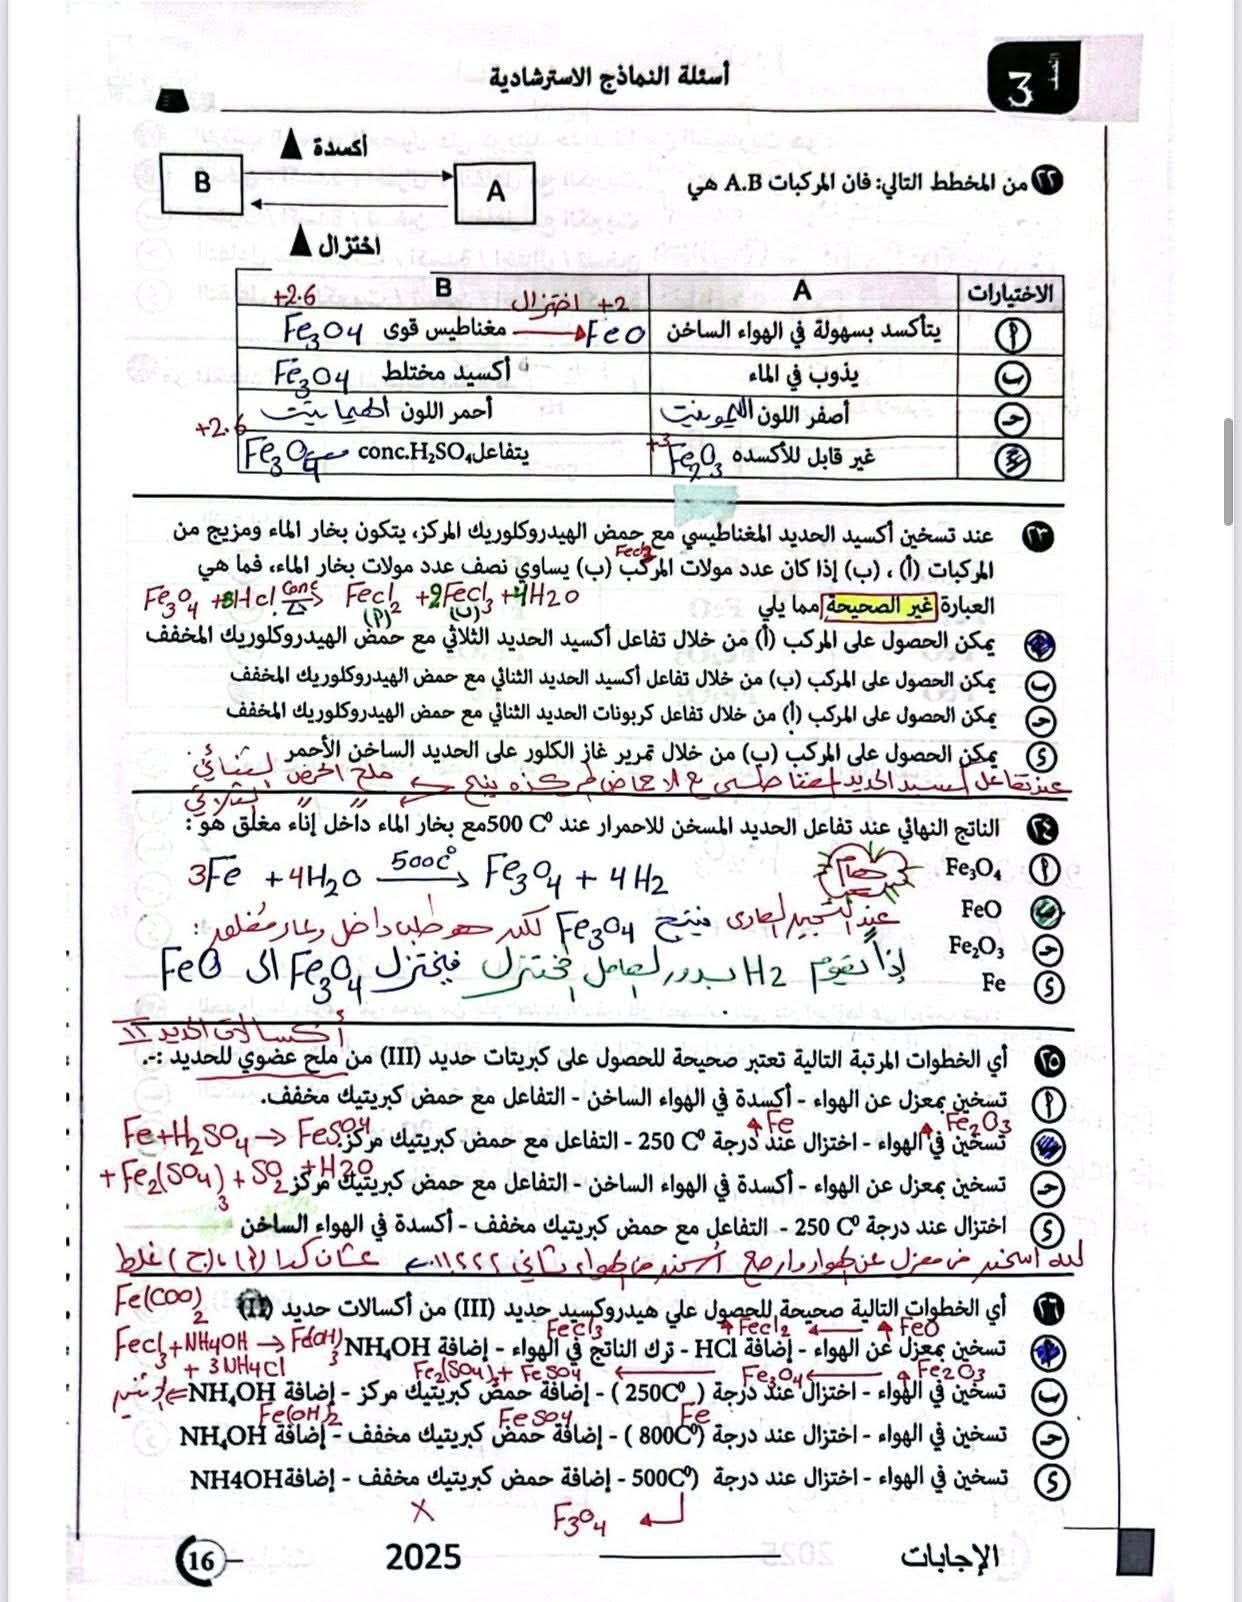 أسئلة النماذج الاسترشادية
الصف
3
٢٢ من المخطط التالي: فان المركبات A.B هي
أكسدة
B
A
اختزال
الاختيارات
A
B
+2.6
اختزال
+2
أ
يتأكسد بسهولة في الهواء الساخن
FeO
مغناطيس قوى
Fe3O4
ب
يذوب في الماء
أكسيد مختلط
Fe3O4
ج
أصفر اللون الليمونيت
أحمر اللون الهيماتيت
+2.6
د
غير قابل للأكسده
+3
Fe2O3
يتفاعل conc.H₂SO₄
Fe3O4
٢٣ عند تسخين أكسيد الحديد المغناطيسي مع حمض الهيدروكلوريك المركز، يتكون بخار الماء ومزيج من
FeCl3
المركبات (أ) ، (ب) إذا كان عدد مولات المركب (ب) يساوي نصف عدد مولات بخار الماء، فما هي
العبارة غير الصحيحة مما يلي
Fe3O4 + 8HCl conc → FeCl2 + 2FeCl3 + 4H2O
(أ) (ب)
يمكن الحصول على المركب (أ) من خلال تفاعل أكسيد الحديد الثلاثي مع حمض الهيدروكلوريك المخفف
ب يمكن الحصول على المركب (ب) من خلال تفاعل أكسيد الحديد الثنائي مع حمض الهيدروكلوريك المخفف
ج يمكن الحصول على المركب (أ) من خلال تفاعل كربونات الحديد الثنائي مع حمض الهيدروكلوريك المخفف
د يمكن الحصول على المركب (ب) من خلال تمرير غاز الكلور على الحديد الساخن الأحمر
عند تفاعل أكسيد الحديد المغناطيسي مع الاحماض المركزه ينتج ← ملح الحمض الثنائي
الثلاثي
٢٤ الناتج النهائي عند تفاعل الحديد المسخن للاحمرار عند 500 C⁰ مع بخار الماء داخل إناء مغلق هو :
أ Fe₃O₄
هام
3Fe + 4H2O 500C° → Fe3O4 + 4H2
ب FeO
عند التحضير العادى فينتج Fe3O4 لكن هو طلب داخل وعاء مغلق :
ج Fe₂O₃
إذاً يقوم H2 بدور العامل المختزل فيختزل Fe3O4 الى FeO
د Fe
أكسالات الحديد II
٢٥ أي الخطوات المرتبة التالية تعتبر صحيحة للحصول على كبريتات حديد (III) من ملح عضوي للحديد :-.
أ تسخين بمعزل عن الهواء - أكسدة في الهواء الساخن - التفاعل مع حمض كبريتيك مخفف.
Fe2O3
Fe
Fe+H2SO4 → FeSO4
تسخين في الهواء - اختزال عند درجة 250 C⁰ - التفاعل مع حمض كبريتيك مركز.
+ Fe2(SO4)3 + SO2 + H2O
ج تسخين بمعزل عن الهواء - أكسدة في الهواء الساخن - التفاعل مع حمض كبريتيك مركز
د اختزال عند درجة 250 C⁰ - التفاعل مع حمض كبريتيك مخفف - أكسدة في الهواء الساخن
ليه اسخن في معزل عن الهواء وارجع اسخن في الهواء تاني عشان كدا (أ) ، (ج) غلط
Fe(COO)2
٢٦ أي الخطوات التالية صحيحة للحصول علي هيدروكسيد حديد (III) من أكسالات حديد (II)
FeO
FeCl2
FeCl3
أ تسخين بمعزل عن الهواء - إضافة HCl - ترك الناتج في الهواء - إضافة NH₄OH
FeCl3 + NH4OH → Fe(OH)3
+ 3NH4Cl
Fe2O3
Fe3O4
Fe2(SO4)3 + FeSO4
ب تسخين في الهواء - اختزال عند درجة (250C⁰) - إضافة حمض كبريتيك مركز - إضافة NH₄OH
Fe
FeSO4
Fe(OH)2
ج تسخين في الهواء - اختزال عند درجة (800C⁰) - إضافة حمض كبريتيك مخفف - إضافة NH₄OH
د تسخين في الهواء - اختزال عند درجة (500C⁰ - إضافة حمض كبريتيك مخفف - إضافة NH4OH
F3O4
X
الإجابات
2025
16